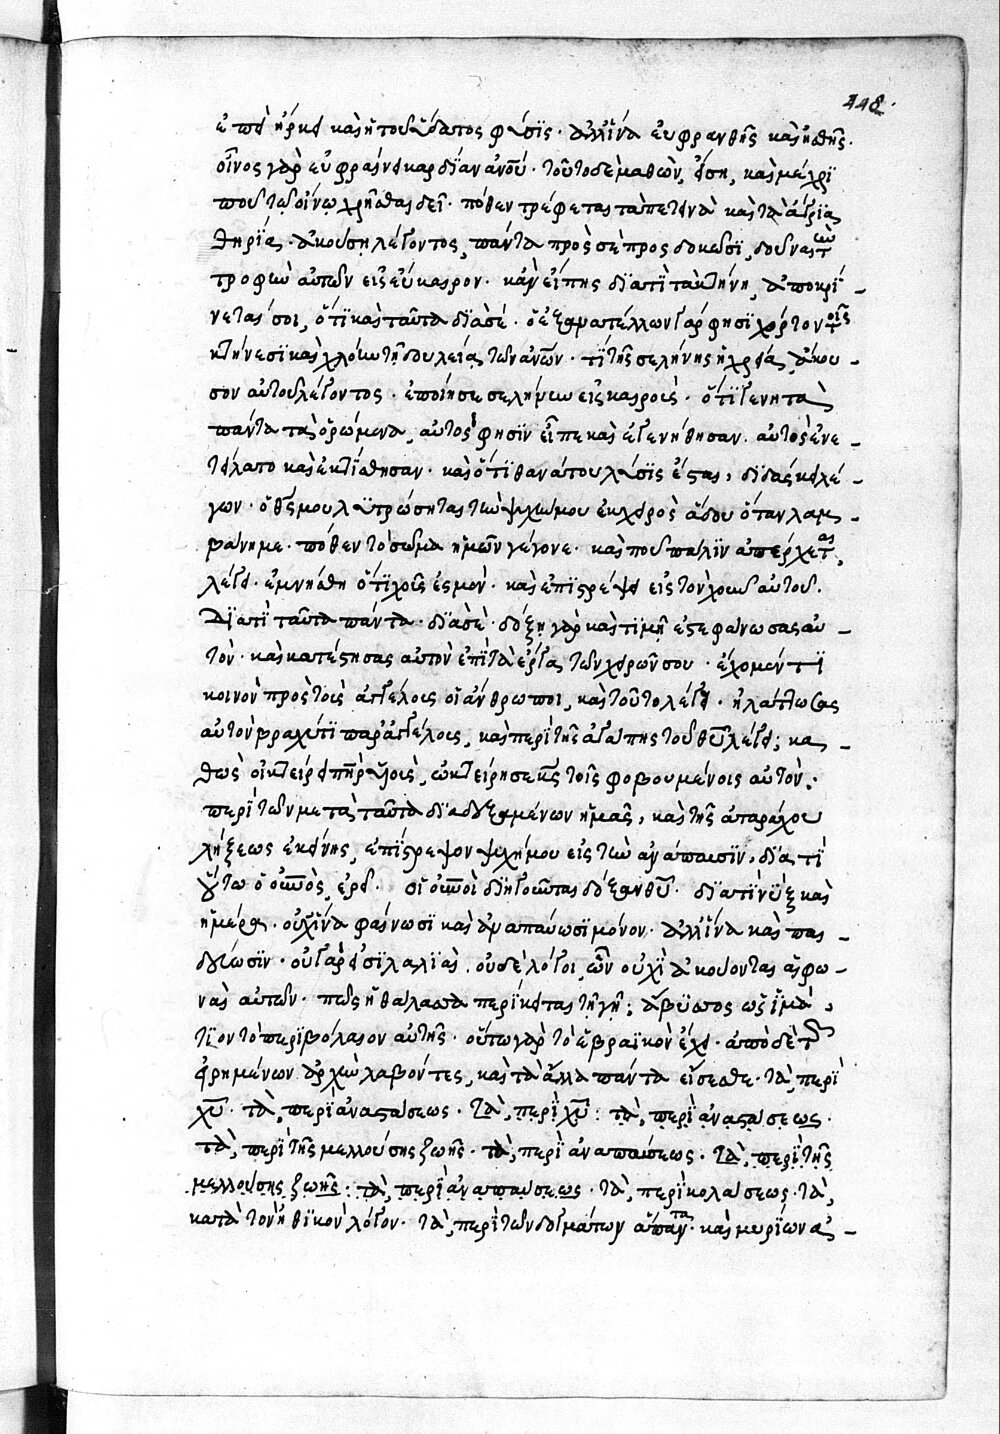 448.
ἐπεὶ ἤρκει καὶ ἡ τοῦ ὕδατος φύσϊς· ἀλλ' ἵνα εὐφρανθῆς καὶ ἡσθῆς.
οἶνος γὰρ εὐφραίνει καρδίαν ἀνου· τοῦτο δὲ μαθὼν, ἴση, καὶ μέχρϊ
ποῦ τῶ οἴνω χρῆσθαι δεῖ· πόθεν τρέφεται τὰ πετεινὰ καὶ τὰ ἄγρϊα
θηρία· ἄκουση λέγοντος, πάντα πρὸς σὲ προσδοκῶσϊ, δοῦναι τὴν
τροφὴν αὐτῶν εἰς εὔκαιρον· κἂν εἴπης δϊατὶ τὰ κτήνη, ἀποκρί-
νεταί σοι, ὅτϊ καὶ ταῦτα δϊὰ σέ· ὁ ἐξανατέλλων γάρ φησϊ χόρτον τοῖς
κτήνεσϊ καὶ χλόην τῆ δουλεία τῶν ἀνων· τί τῆς σελήνης ἡ χρεία, ἄκου-
σον αὐτοῦ λέγοντος· ἐποίησε σελήνην εἰς καιρούς· ὅτϊ γενητὰ
πάντα τὰ ὁρώμενα, αὐτὸς φησὶν εἶπε καὶ ἐγενήθησαν· αὐτὸς ἐνε-
τείλατο καὶ ἐκτίσθησαν· καὶ ὅτϊ θανάτου λύσϊς ἔσται, δϊδάσκει λέ-
γων· ὁ θς μου λϋτρώσηται τὴν ψυχήν μου ἐκ χειρὸς ἅδου ὅταν λαμ-
βάνη με· πόθεν τὸ σῶμα ἡμῶν γέγονε· καὶ ποῦ πάλϊν ἀπέρχεται,
λέγει· ἐμνήσθη ὅτϊ χοῦς ἐσμέν· καὶ ἐπϊστρέψει εἰς τὸν χοῦν αὐτοῦ.
Δϊατὶ ταῦτα πάντα· δϊὰ σὲ· δόξη γὰρ καὶ τϊμῆ ἐστεφάνωσας αὐ-
τὸν· καὶ κατέστησας αὐτὸν ἐπὶ τὰ ἔργα τῶν χειρῶν σου· ἔχομέν τϊ
κοινὸν πρὸς τοὺς ἀγγέλους οἱ ἄνθρωποι, καὶ τοῦτο λέγει· ἠλάττωσας
αὐτὸν βραχύ τι παρ' ἀγγέλους, καὶ περὶ τῆς ἀγάπης τοῦ θυ λέγει; κα-
θὼς οἰκτείρει πηρ υἱοὺς, ὠκτείρησε κς τοὺς φοβουμένους αὐτόν.
περὶ τῶν μετὰ ταῦτα δϊαδεξαμένων ἡμᾶς, καὶ τῆς ἀταράχου
λήξεως ἐκείνης, ἐπίστρεψον ψυχή μου εἰς τὴν ἀνάπαυσίν, δϊὰ τί
οὕτω ὁ οὐνος, ἐρεῖ· οἱ οὐνοὶ δϊηγοῦνται δόξαν θυ· δϊατὶ νὺξ καὶ
ἡμέρα· οὐχ ἵνα φαίνωσϊ καὶ ἀναπαύωσϊ μόνον· ἀλλ' ἵνα καὶ παι-
δεύωσϊν· οὐ γὰρ εἰσϊ λαλϊαὶ, οὐδὲ λόγοι, ὧν οὐχὶ ἀκούονται αἱ φω-
ναὶ αὐτῶν· πῶς ἡ θάλασσα περίκειται τῆ γῆ; ἄβϋσσος ὡς ἱμά-
τϊον τὸ περϊβόλαιον αὐτῆς· οὕτω γὰρ τὸ ἑβραϊκὸν ἔχει· ἀπὸ δὲ τῶν
εἰρημένων ἀρχὴν λαβόντες, καὶ τὰ ἄλλα πάντα εἴσεσθε· τὰ, περὶ
χυ· τὰ, περὶ ἀναστάσεως· τὰ, περὶ χυ: τὰ, περὶ ἀναστάσεως·
τὰ, περὶ τῆς μελλούσης ζωῆς· τὰ, περὶ ἀναπαύσεως· τὰ, περὶ τῆς
μελλούσης ζωῆς: τὰ, περὶ ἀναπαύσεως· τὰ, περὶ κολάσεως· τὰ,
κατὰ τὸν ἠθϊκὸν λόγον· τὰ, περὶ τῶν δογμάτων ἅπαντα· καὶ μυρίων ἀ-